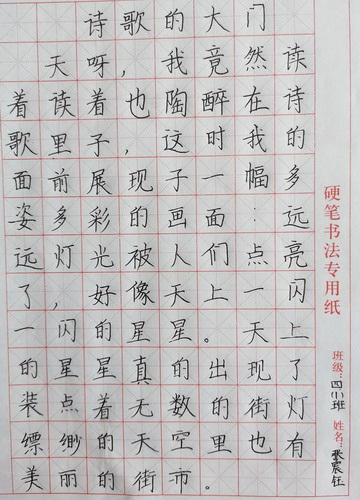 诗歌的大门
天呀，我竟然读
着读着也陶醉在诗
歌里子，这时我的
面前展现子一幅多
姿多彩的画面：远
远灯光被人们点亮
了，好像天上一闪
一闪的星星。天上
的星星真的出现了
装点着无数的街灯
缥缈的天空里也有
美丽的街市。
硬笔书法专用纸
班级：四(1)班 姓名：